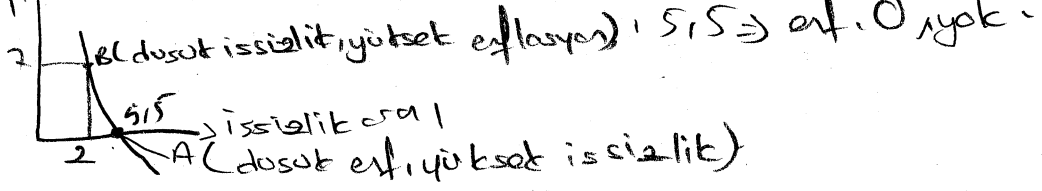 7 B(dusuk issizlik, yüksek enflasyon) : 5,5 => enf. 0 yok.
5,5
issizlik oral
2 A (dusuk enf, yüksek issizlik)